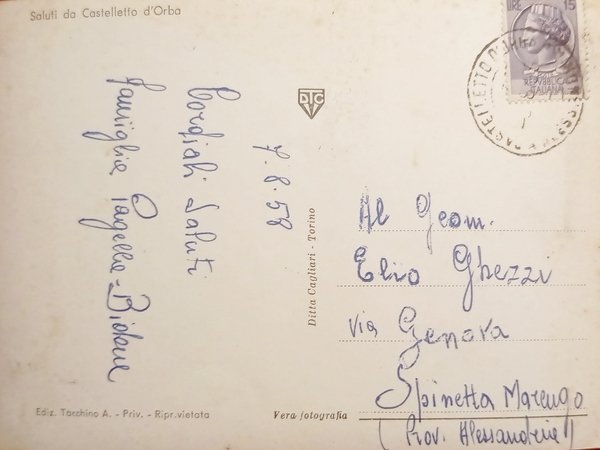 Saluti da Castelletto d'Orba
LIRE 15
REPUBBLICA
ITALIANA
CASTELLETTO D'
DTC
7.8.58
Cordiali Saluti
famiglia
Ditta Cagliari - Torino
Al Geom.
Elio Ghezzi
Via Genova
Spinetta Marengo
(Prov. Alessandria)
Ediz. Tacchino A. - Priv. - Ripr. vietata
Vera fotografia